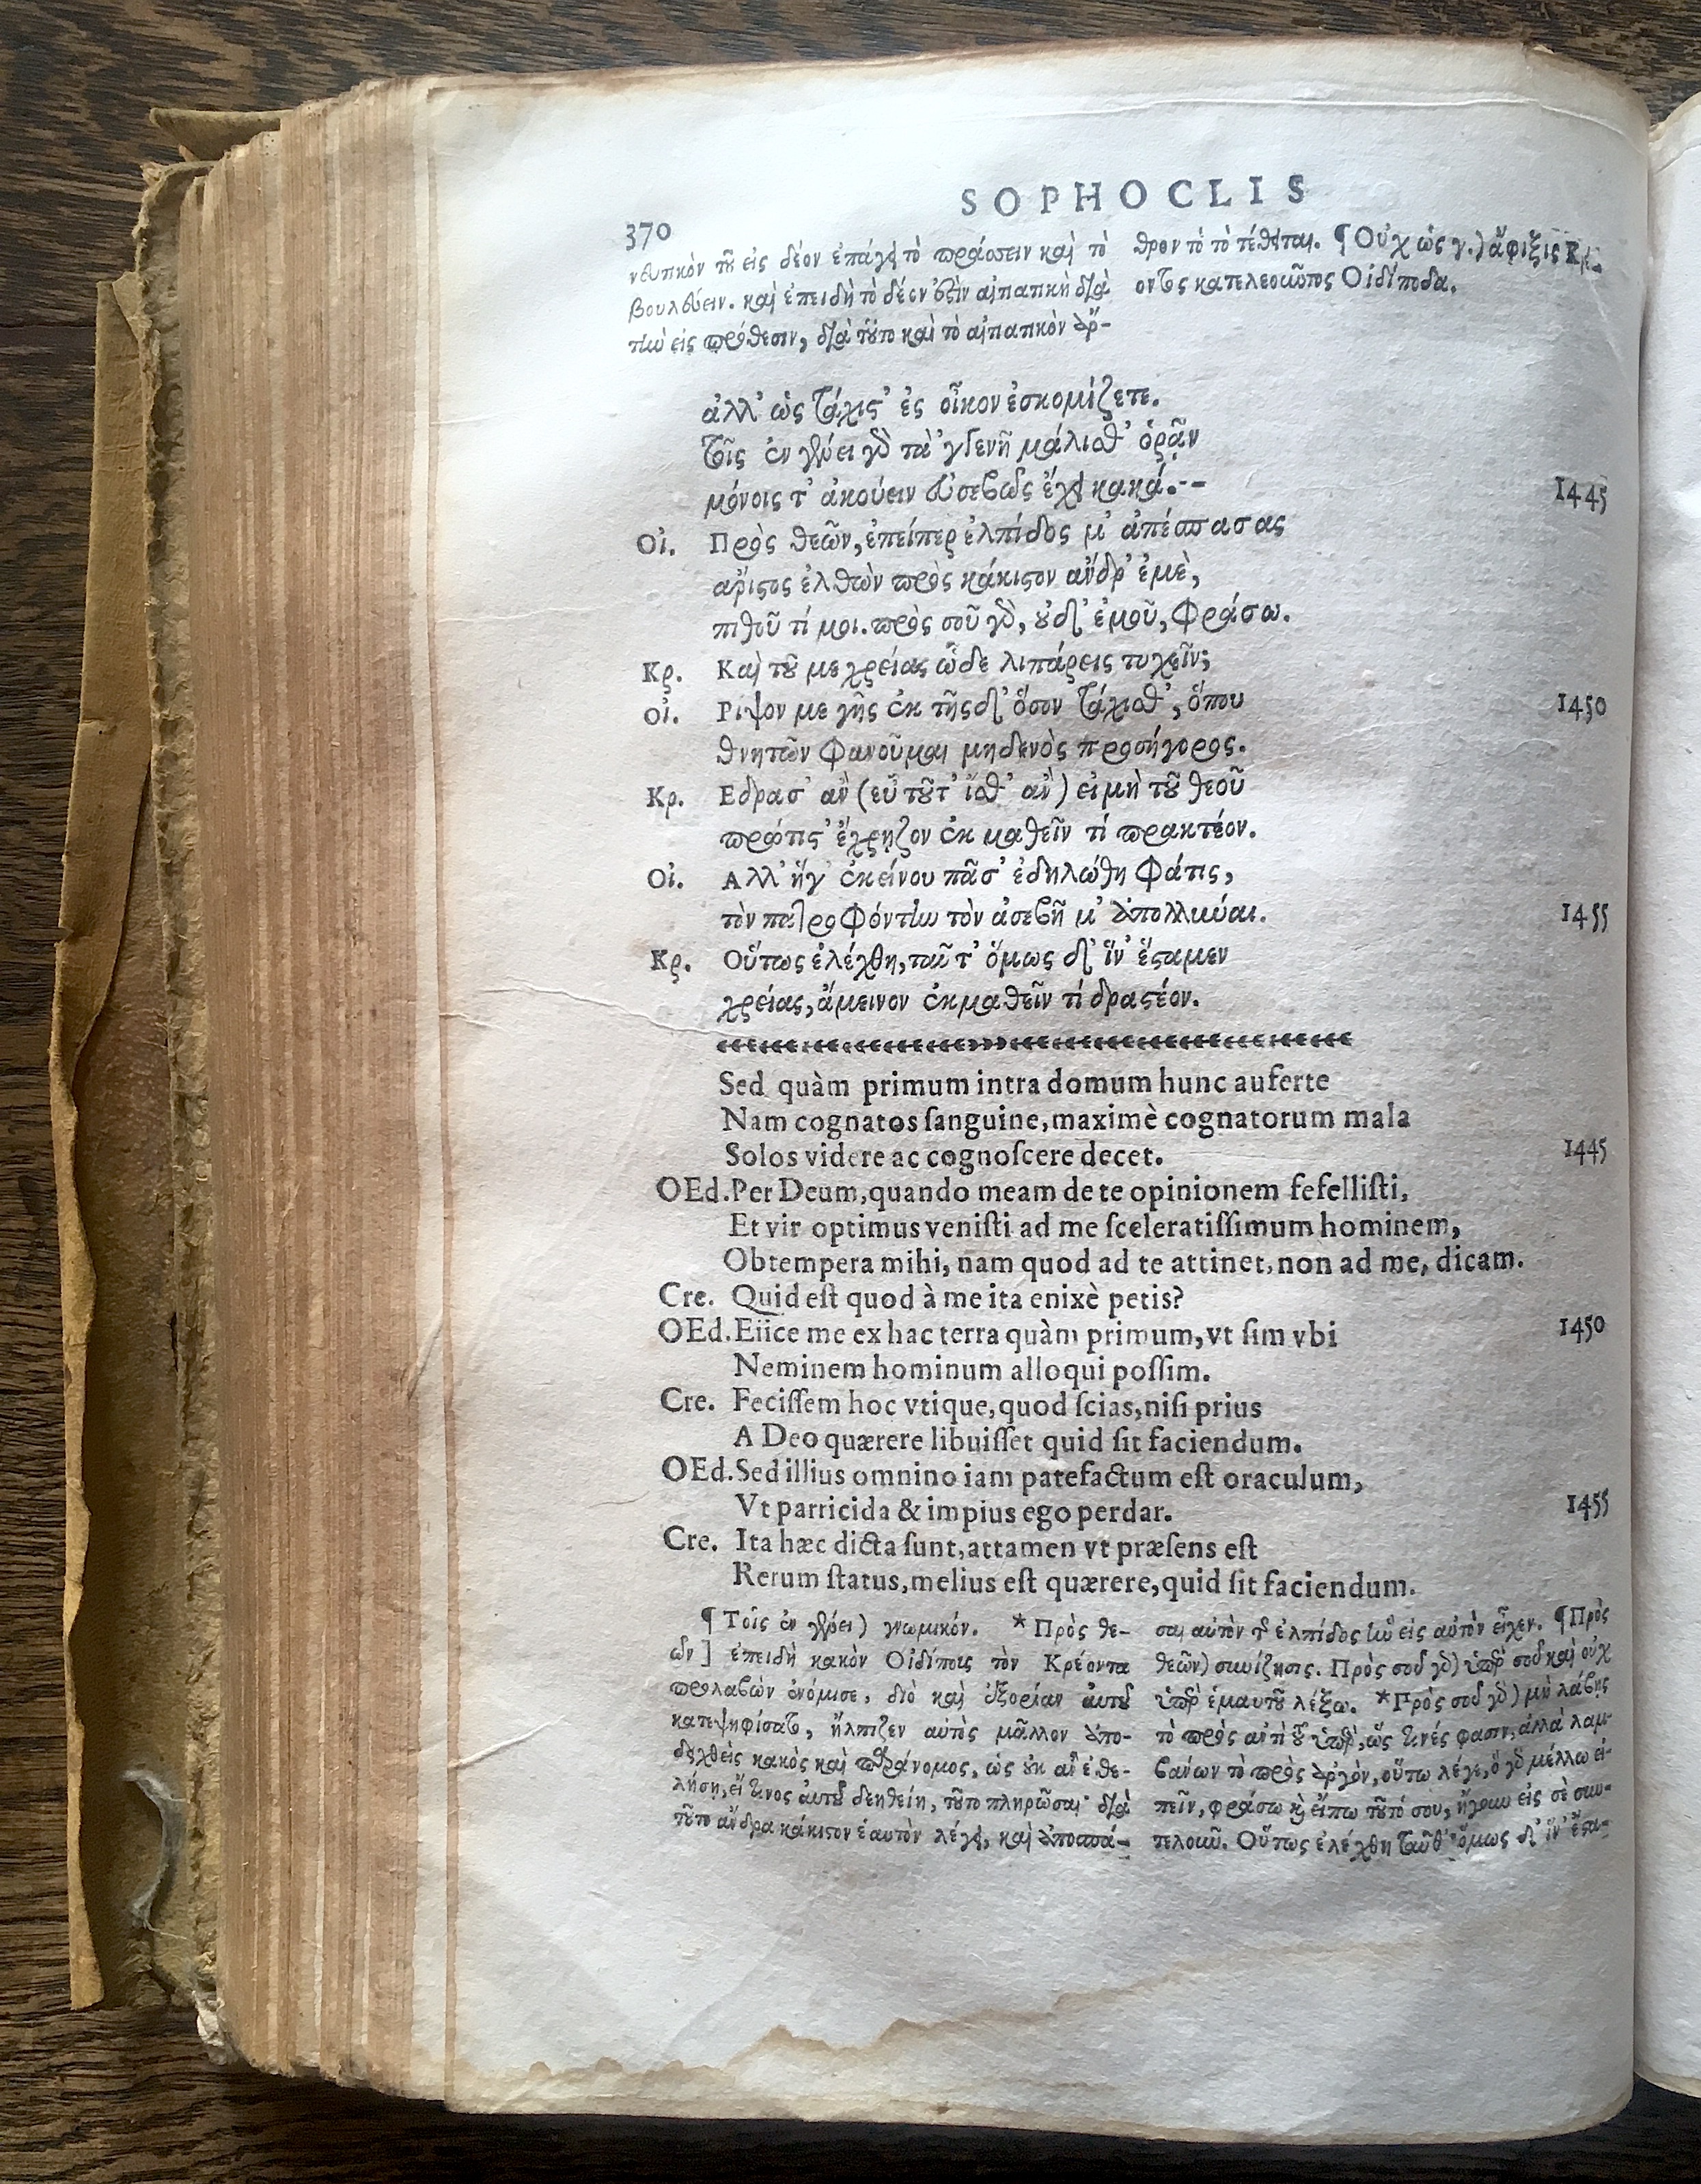 SOPHOCLIS
370
τικὸν τοῦ εἰς δέον ἐπάγει τὸ πράσσειν καὶ τὸ
βουλεύειν. καὶ ἐπειδὴ τὸ δέον ἐστὶν αἰτιατικὴ διὰ
τὴν εἰς πρόθεσιν, διὰ τοῦτο καὶ τὸ αἰτιατικὸν ἄρ-
θρον τὸ τὸ τέθειται. ¶ Οὐχ ὡς γ.) ἄφιξις
Οἰδίποδα.
ἀλλ' ὡς τάχιστ' ἐς οἶκον ἐσκομίζετε.
τοῖς ἐν γένει γὰρ τὰ 'γγενῆ μάλισθ' ὁρᾷν
μόνοις τ' ἀκούειν εὐσεβῶς ἔχει κακά.--
1445
Οἰ. Πρὸς θεῶν, ἐπείπερ ἐλπίδος μ' ἀπέσπασας
ἄριστος ἐλθὼν πρὸς κάκιστον ἄνδρ' ἐμὲ,
πιθοῦ τί μοι. πρὸς σοῦ γὰρ, οὐδ' ἐμοῦ, φράσω.
Κρ. Καὶ τοῦ με χρείας ὧδε λιπάρεις τυχεῖν;
Οἰ. Ρίψον με γῆς ἐκ τῆσδ' ὅσον τάχισθ', ὅπου
1450
θνητῶν φανοῦμαι μηδενὸς προσήγορος.
Κρ. Εδρασ' ἂν (εὖ τοῦτ' ἴσθ' ἂν) εἰ μὴ τοῦ θεοῦ
πρώτιστ' ἔχρηζον ἐκ μαθεῖν τί πρακτέον.
Οἰ. Αλλ' ἥγ' ἐκείνου πᾶσ' ἐδηλώθη φάτις,
τὸν πατροφόντην τὸν ἀσεβῆ μ' ἀπολλύναι.
1455
Κρ. Οὕτως ἐλέχθη, ταῦτ' ὅμως δ' ἵν' ἕσταμεν
χρείας, ἄμεινον ἐκμαθεῖν τί δραστέον.
Sed quàm primum intra domum hunc auferte
Nam cognatos ſanguine, maximè cognatorum mala
Solos videre ac cognoſcere decet.
1445
OEd. Per Deum, quando meam de te opinionem fefelliſti,
Et vir optimus veniſti ad me ſceleratiſſimum hominem,
Obtempera mihi, nam quod ad te attinet, non ad me, dicam.
Cre. Quid eſt quod à me ita enixè petis?
OEd. Eiice me ex hac terra quàm primum, vt ſim vbi
1450
Neminem hominum alloqui poſſim.
Cre. Feciſſem hoc vtique, quod ſcias, niſi prius
A Deo quærere libuiſſet quid ſit faciendum.
OEd. Sed illius omnino iam patefactum eſt oraculum,
Vt parricida & impius ego perdar.
1455
Cre. Ita hæc dicta ſunt, attamen vt præſens eſt
Rerum ſtatus, melius eſt quærere, quid ſit faciendum.
¶ Τοῖς ἐν γένει) γνωμικόν. * Πρὸς θε-
ῶν] ἐπειδὴ κακὸν Οἰδίπους τὸν Κρέοντα
προλαβὼν ἐνόμισε, διὸ καὶ ἐξορίαν αὐτοῦ
κατεψηφίσατο, ἤλπιζεν αὐτὸς μᾶλλον ἀπο-
δειχθεὶς κακὸς καὶ παράνομος, ὡς οὐκ ἂν ἐθε-
λήσῃ, εἴ τινος αὐτοῦ δεηθείη, τοῦτο πληρῶσαι· διὰ
τοῦτο ἄνδρα κάκιστον ἑαυτὸν λέγει, καὶ ἀποσπά-
σαι αὐτὸν τῆς ἐλπίδος ἣν εἰς αὐτὸν εἶχεν. ¶ Πρὸς
θεῶν) συνίζησις. Πρὸς σοῦ γὰρ) ὑπὲρ σοῦ καὶ οὐχ
ὑπὲρ ἐμαυτοῦ λέξω. * Πρὸς σοῦ γὰρ) μὴ λάβῃς
τὸ πρὸς ἀντὶ τοῦ ὑπὲρ, ὥς τινές φασιν, ἀλλὰ λαμ-
βάνων τὸ πρὸς ἀργὸν, οὕτω λέγε, ὃ γὰρ μέλλω εἰ-
πεῖν, φράσω καὶ εἴπω τοῦτό σου, ἤγουν εἰς σὲ συν-
τελοῦν. Οὕτως ἐλέχθη ταῦθ' ὅμως δ' ἵν' ἕστα-